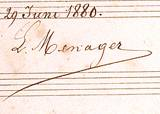 29 Juni 1880.
L. Menager